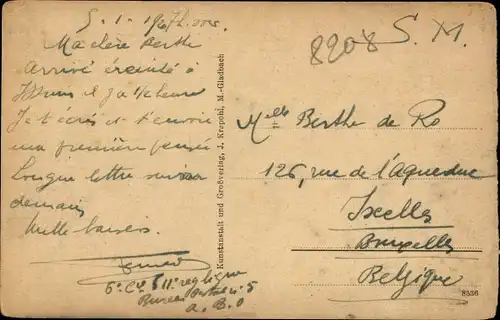 Ma chère Berthe
Arrivé éreinté à
il y a 1/2 heure
Je t'écris et t'envoie
ma première pensée
Longue lettre suivra
demain
Mille baisers.
6e Cie 11e reg ligne
Bureau Postal no 5
A. B. O
Kunstanstalt und Großverlag, J. Krapohl, M.-Gladbach
8208 S. M.
Melle Berthe de Ro
126, rue de l'Aqueduc
Ixelles
Bruxelles
Belgique
8536